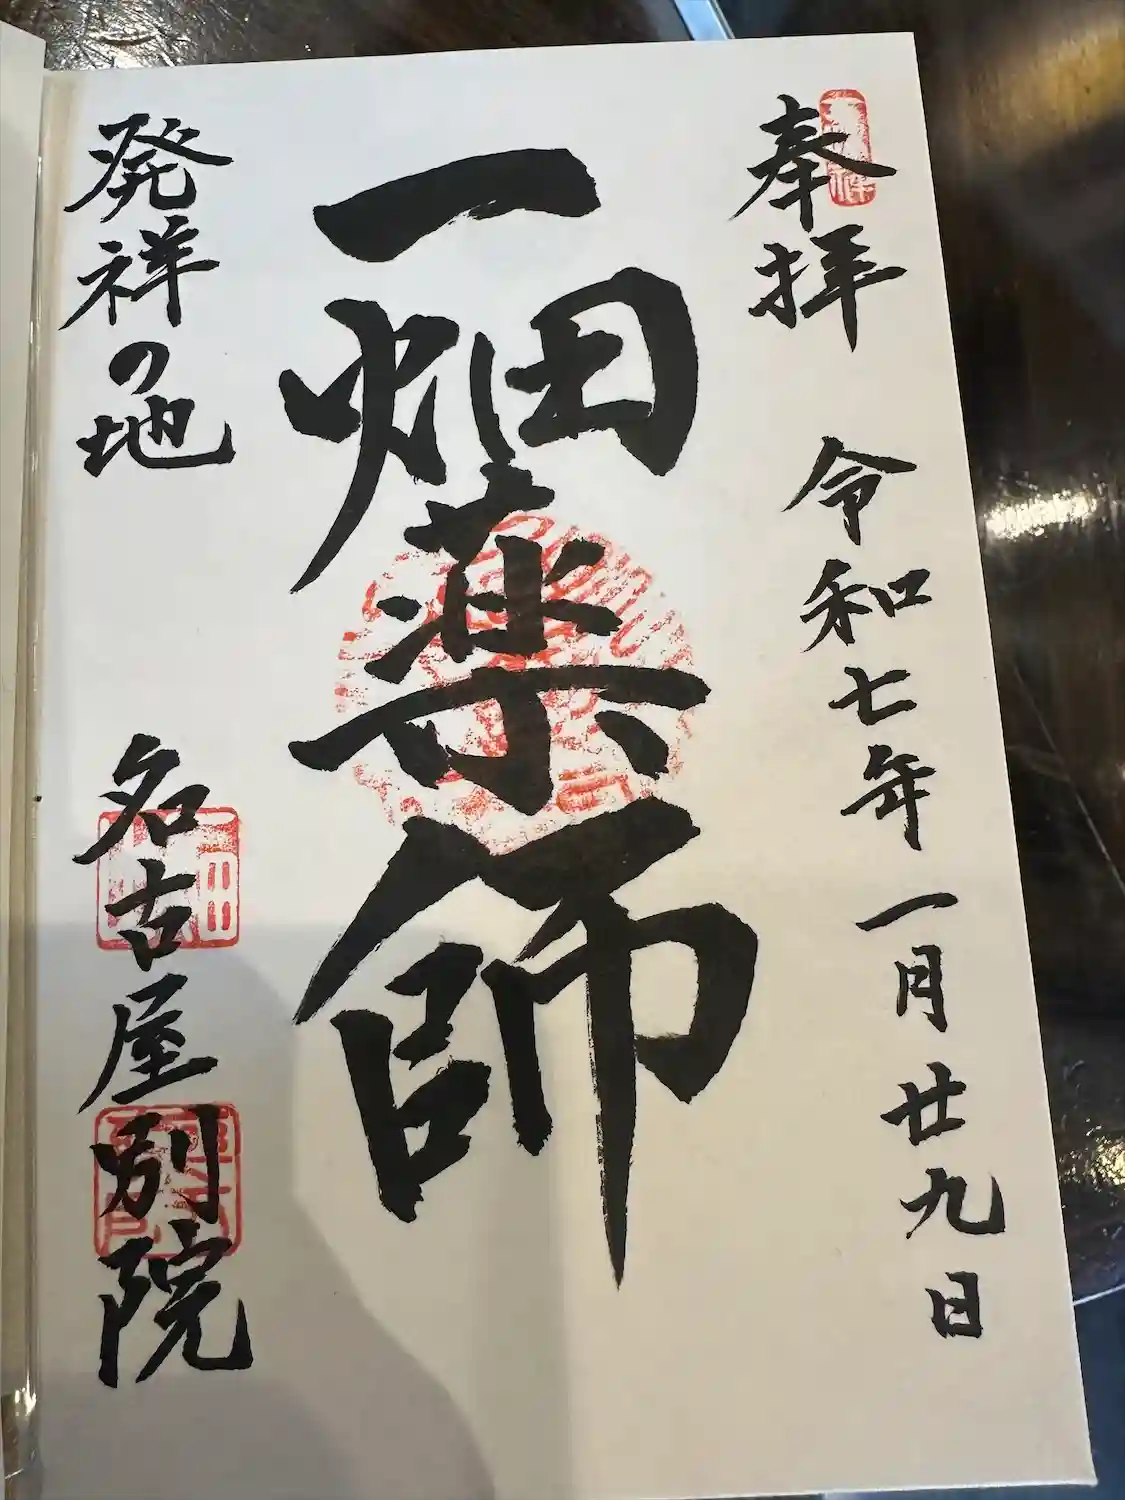 奉拝 令和七年 一月廿九日
一畑薬師
発祥の地 名古屋別院